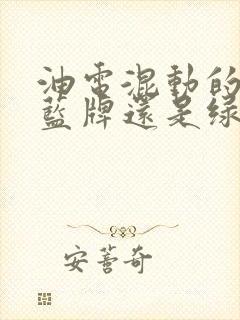 油電混動的
藍牌還是綠
安薈奇